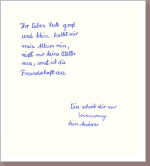 Ihr lieben Leute groß
und klein, haltet mir
mein Album rein,
reißt mir keine Blätter
raus, sonst ist die
Freundschaft aus.
Dies schrieb dir zur
Erinnerung
dein Andreas